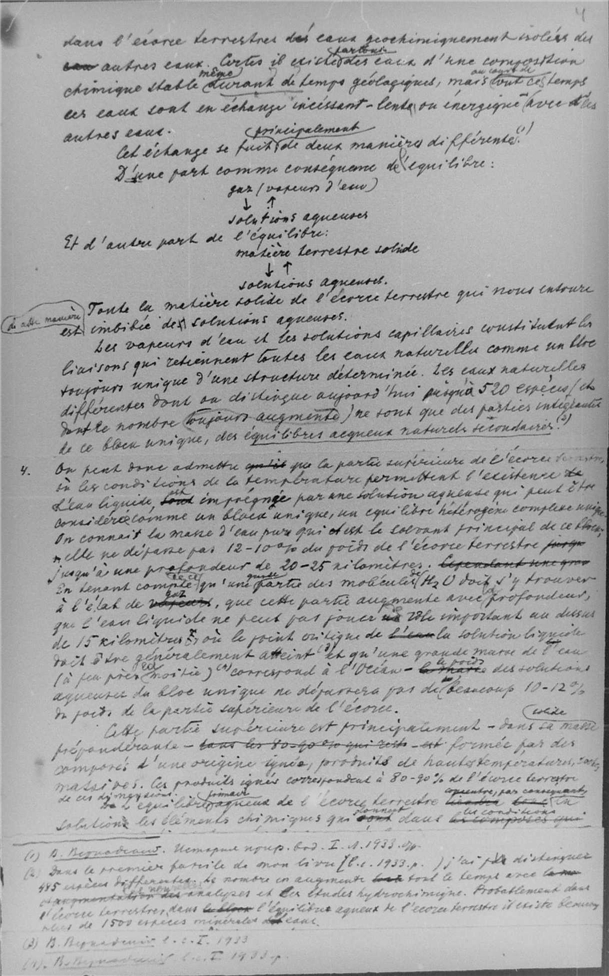 4
dans l'écorce terrestre des eaux géochimiquement isolées des
autres eaux. Certes il existe partout des eaux d'une composition
chimique stable même durant de temps géologiques, mais tout ce temps
ces eaux sont en échange incessant - lente ou énergique avec des
autres eaux.
Cet échange se fait principalement de deux manières différentes (1)
D'une part comme conséquence de l'équilibre:
gaz (vapeurs d'eau)
↓ ↑
solutions aqueuses
Et d'autre part de l'équilibre:
matière terrestre solide
↓ ↑
solutions aqueuses.
Toute la matière solide de l'écorce terrestre qui nous entoure
est de cette manière imbibée des solutions aqueuses.
Les vapeurs d'eau et les solutions capillaires constituent les
liaisons qui retiennent toutes les eaux naturelles comme un bloc
toujours unique d'une structure déterminée. Les eaux naturelles
différentes dont on distingue aujourd'hui jusqu'à 520 espèces (et
dont le nombre toujours augmente) ne sont que des parties intégrantes
de ce bloc unique, des équilibres aqueux naturels secondaires. (2)
4. On peut donc admettre que la partie supérieure de l'écorce terrestre,
où les conditions de la température permettent l'existence de
l'eau liquide, est imprégnée par une solution aqueuse qui peut être
considérée comme un block unique, un équilibre hétérogène complexe unique.
On connait la masse d'eau pure qui est le solvant principal de ce bloc,
elle ne dépasse pas 12-10% du poids de l'écorce terrestre
jusqu'à une profondeur de 20-25 kilomètres.
En tenant compte de ce qu'une partie des molécules H2O doit s'y trouver
à l'état de gaz, que cette partie augmente avec la profondeur,
que l'eau liquide ne peut pas jouer un rôle important au dessus
de 15 kilomètres, où le point critique de la solution liquide
doit être généralement atteint (3) et qu'une grande masse de l'eau
(à peu près la moitié) (4) correspond à l'Océan - le poids des solutions
aqueuses du bloc unique ne dépassera pas de beaucoup 10-12%
du poids de la partie supérieure de l'écorce.
Cette partie supérieure est principalement - dans sa masse solide
prépondérante - formée par des
composés d'une origine ignée, produits de hautes températures, roches
massives. Ces produits ignés correspondent à 80-90% de l'écorce terrestre
de ces dimensions.
L'équilibre primaire aqueux de l'écorce terrestre
solution les éléments chimiques qui dans les conditions
(1) В. Вернадский. История прир. вод. I. 1. 1933.
(2) Dans le premier fascicule de mon livre (l. c. 1933. p. ) j'ai pu distinguer
445 espèces différentes. Le nombre en augmente tout le temps avec
des analyses et les études hydrochimiques. Probablement dans
l'écorce terrestre, dans l'équilibre aqueux de l'écorce terrestre il existe beaucoup
plus de 1500 espèces minérales des eaux.
(3) В. Вернадский l. c. I. 1933
(4) В. Вернадский l. c. I. 1933. p.